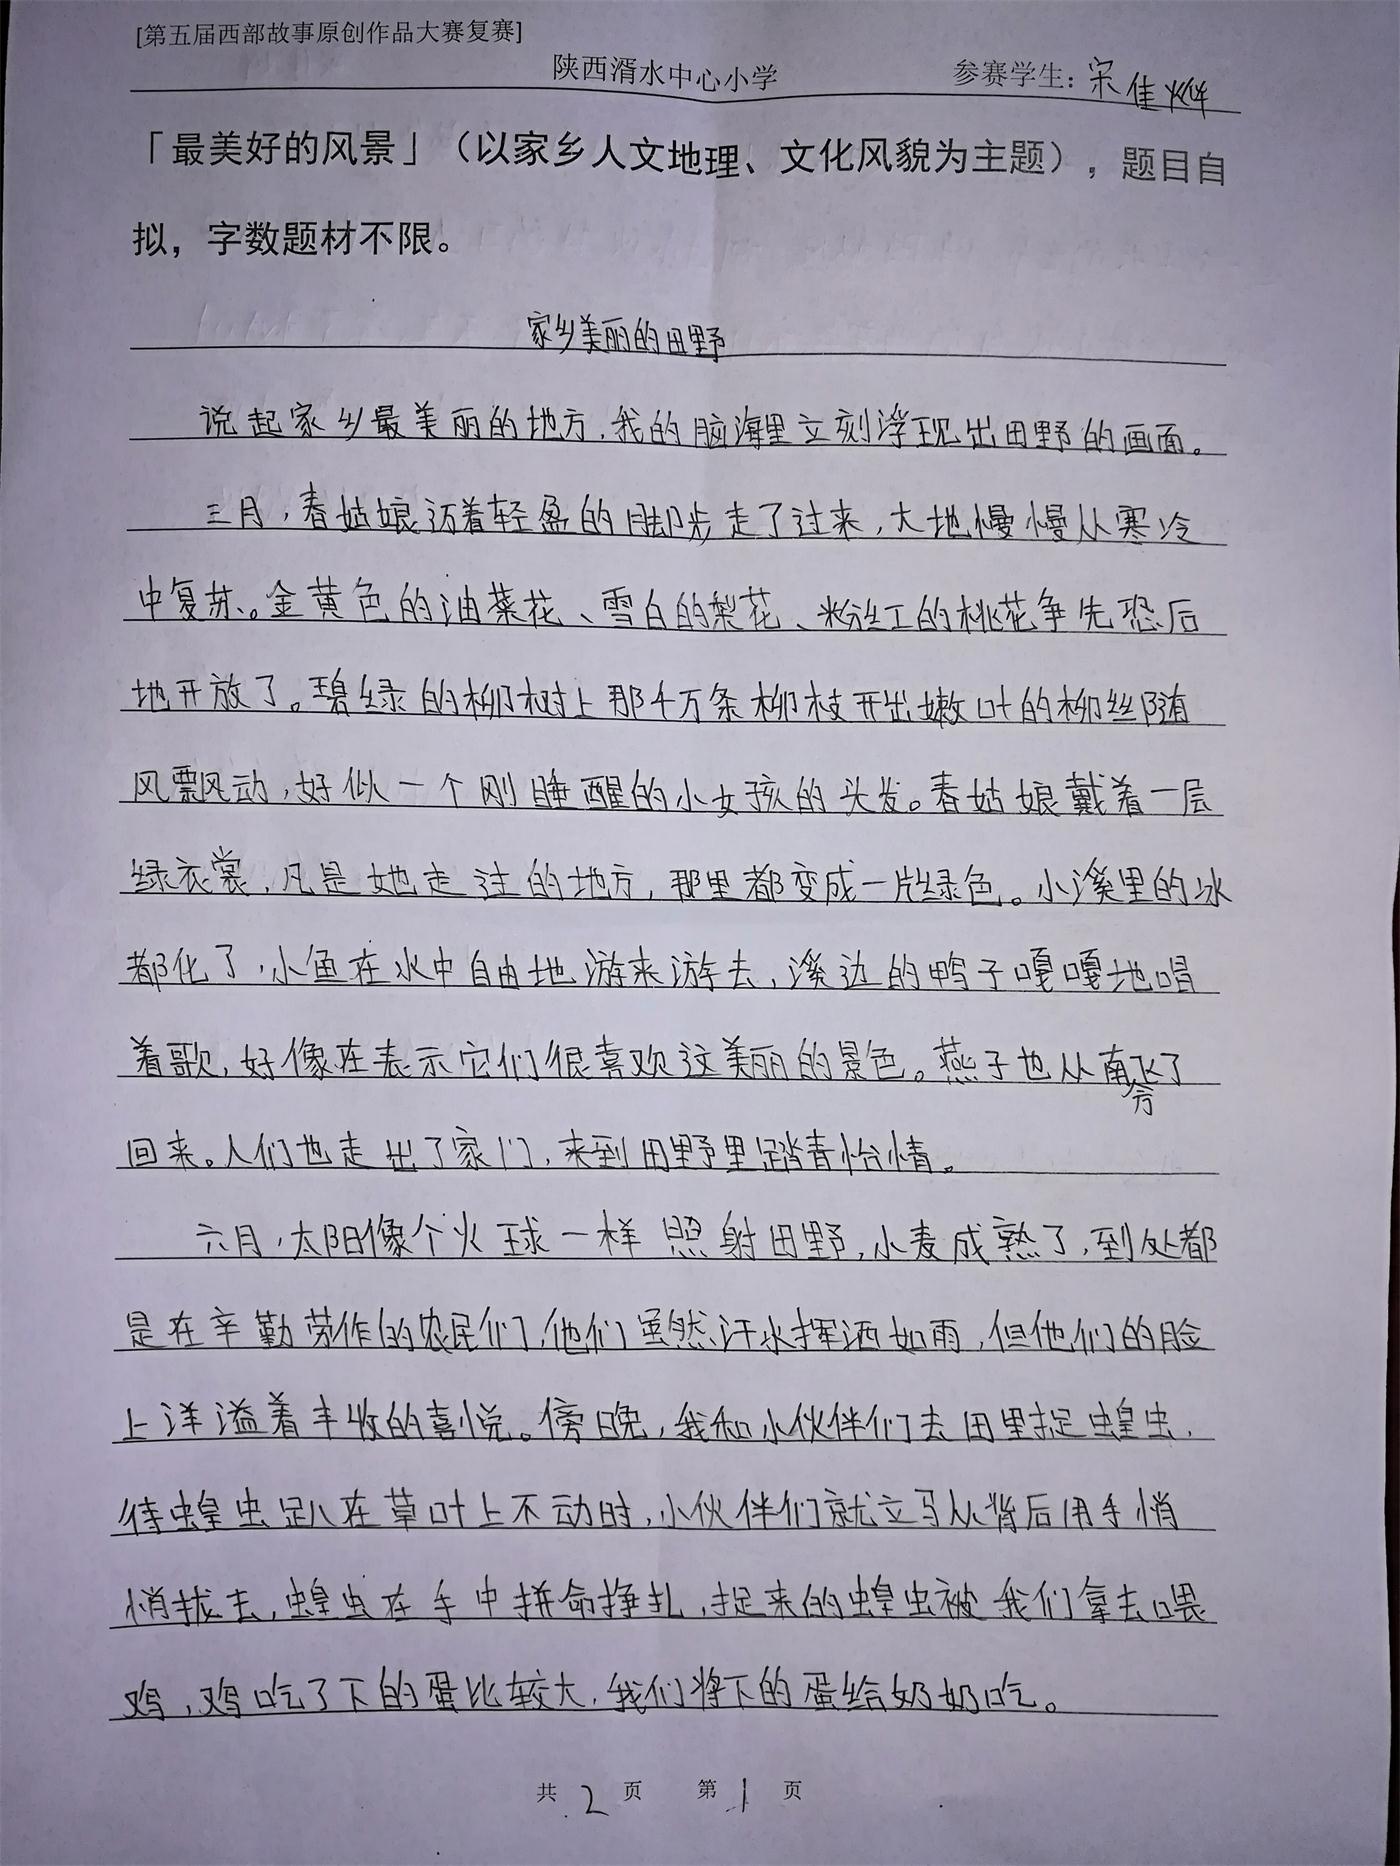 [第五届西部故事原创作品大赛复赛]
陕西湑水中心小学 参赛学生：宋佳烨
「最美好的风景」（以家乡人文地理、文化风貌为主题），题目自
拟，字数题材不限。
家乡美丽的田野
说起家乡最美丽的地方，我的脑海里立刻浮现出田野的画面。
三月，春姑娘迈着轻盈的脚步走了过来，大地慢慢从寒冷
中复苏。金黄色的油菜花、雪白的梨花、粉红的桃花争先恐后
地开放了。碧绿的柳树上那千万条柳枝开出嫩叶的柳丝随
风飘动，好似一个刚睡醒的小女孩的头发。春姑娘戴着一层
绿衣裳，凡是她走过的地方，那里都变成一片绿色。小溪里的冰
都化了，小鱼在水中自由地游来游去，溪边的鸭子嘎嘎地唱
着歌，好像在表示它们很喜欢这美丽的景色。燕子也从南方飞了
回来。人们也走出了家门，来到田野里踏青怡情。
六月，太阳像个火球一样照射田野，小麦成熟了，到处都
是在辛勤劳作的农民们，他们虽然汗水挥洒如雨，但他们的脸
上洋溢着丰收的喜悦。傍晚，我和小伙伴们去田里捉蝗虫，
待蝗虫趴在草叶上不动时，小伙伴们就立马从背后用手悄
悄拔去，蝗虫在手中拼命挣扎，捉来的蝗虫被我们拿去喂
鸡，鸡吃了下的蛋比较大，我们将下的蛋给奶奶吃。
共2页 第1页